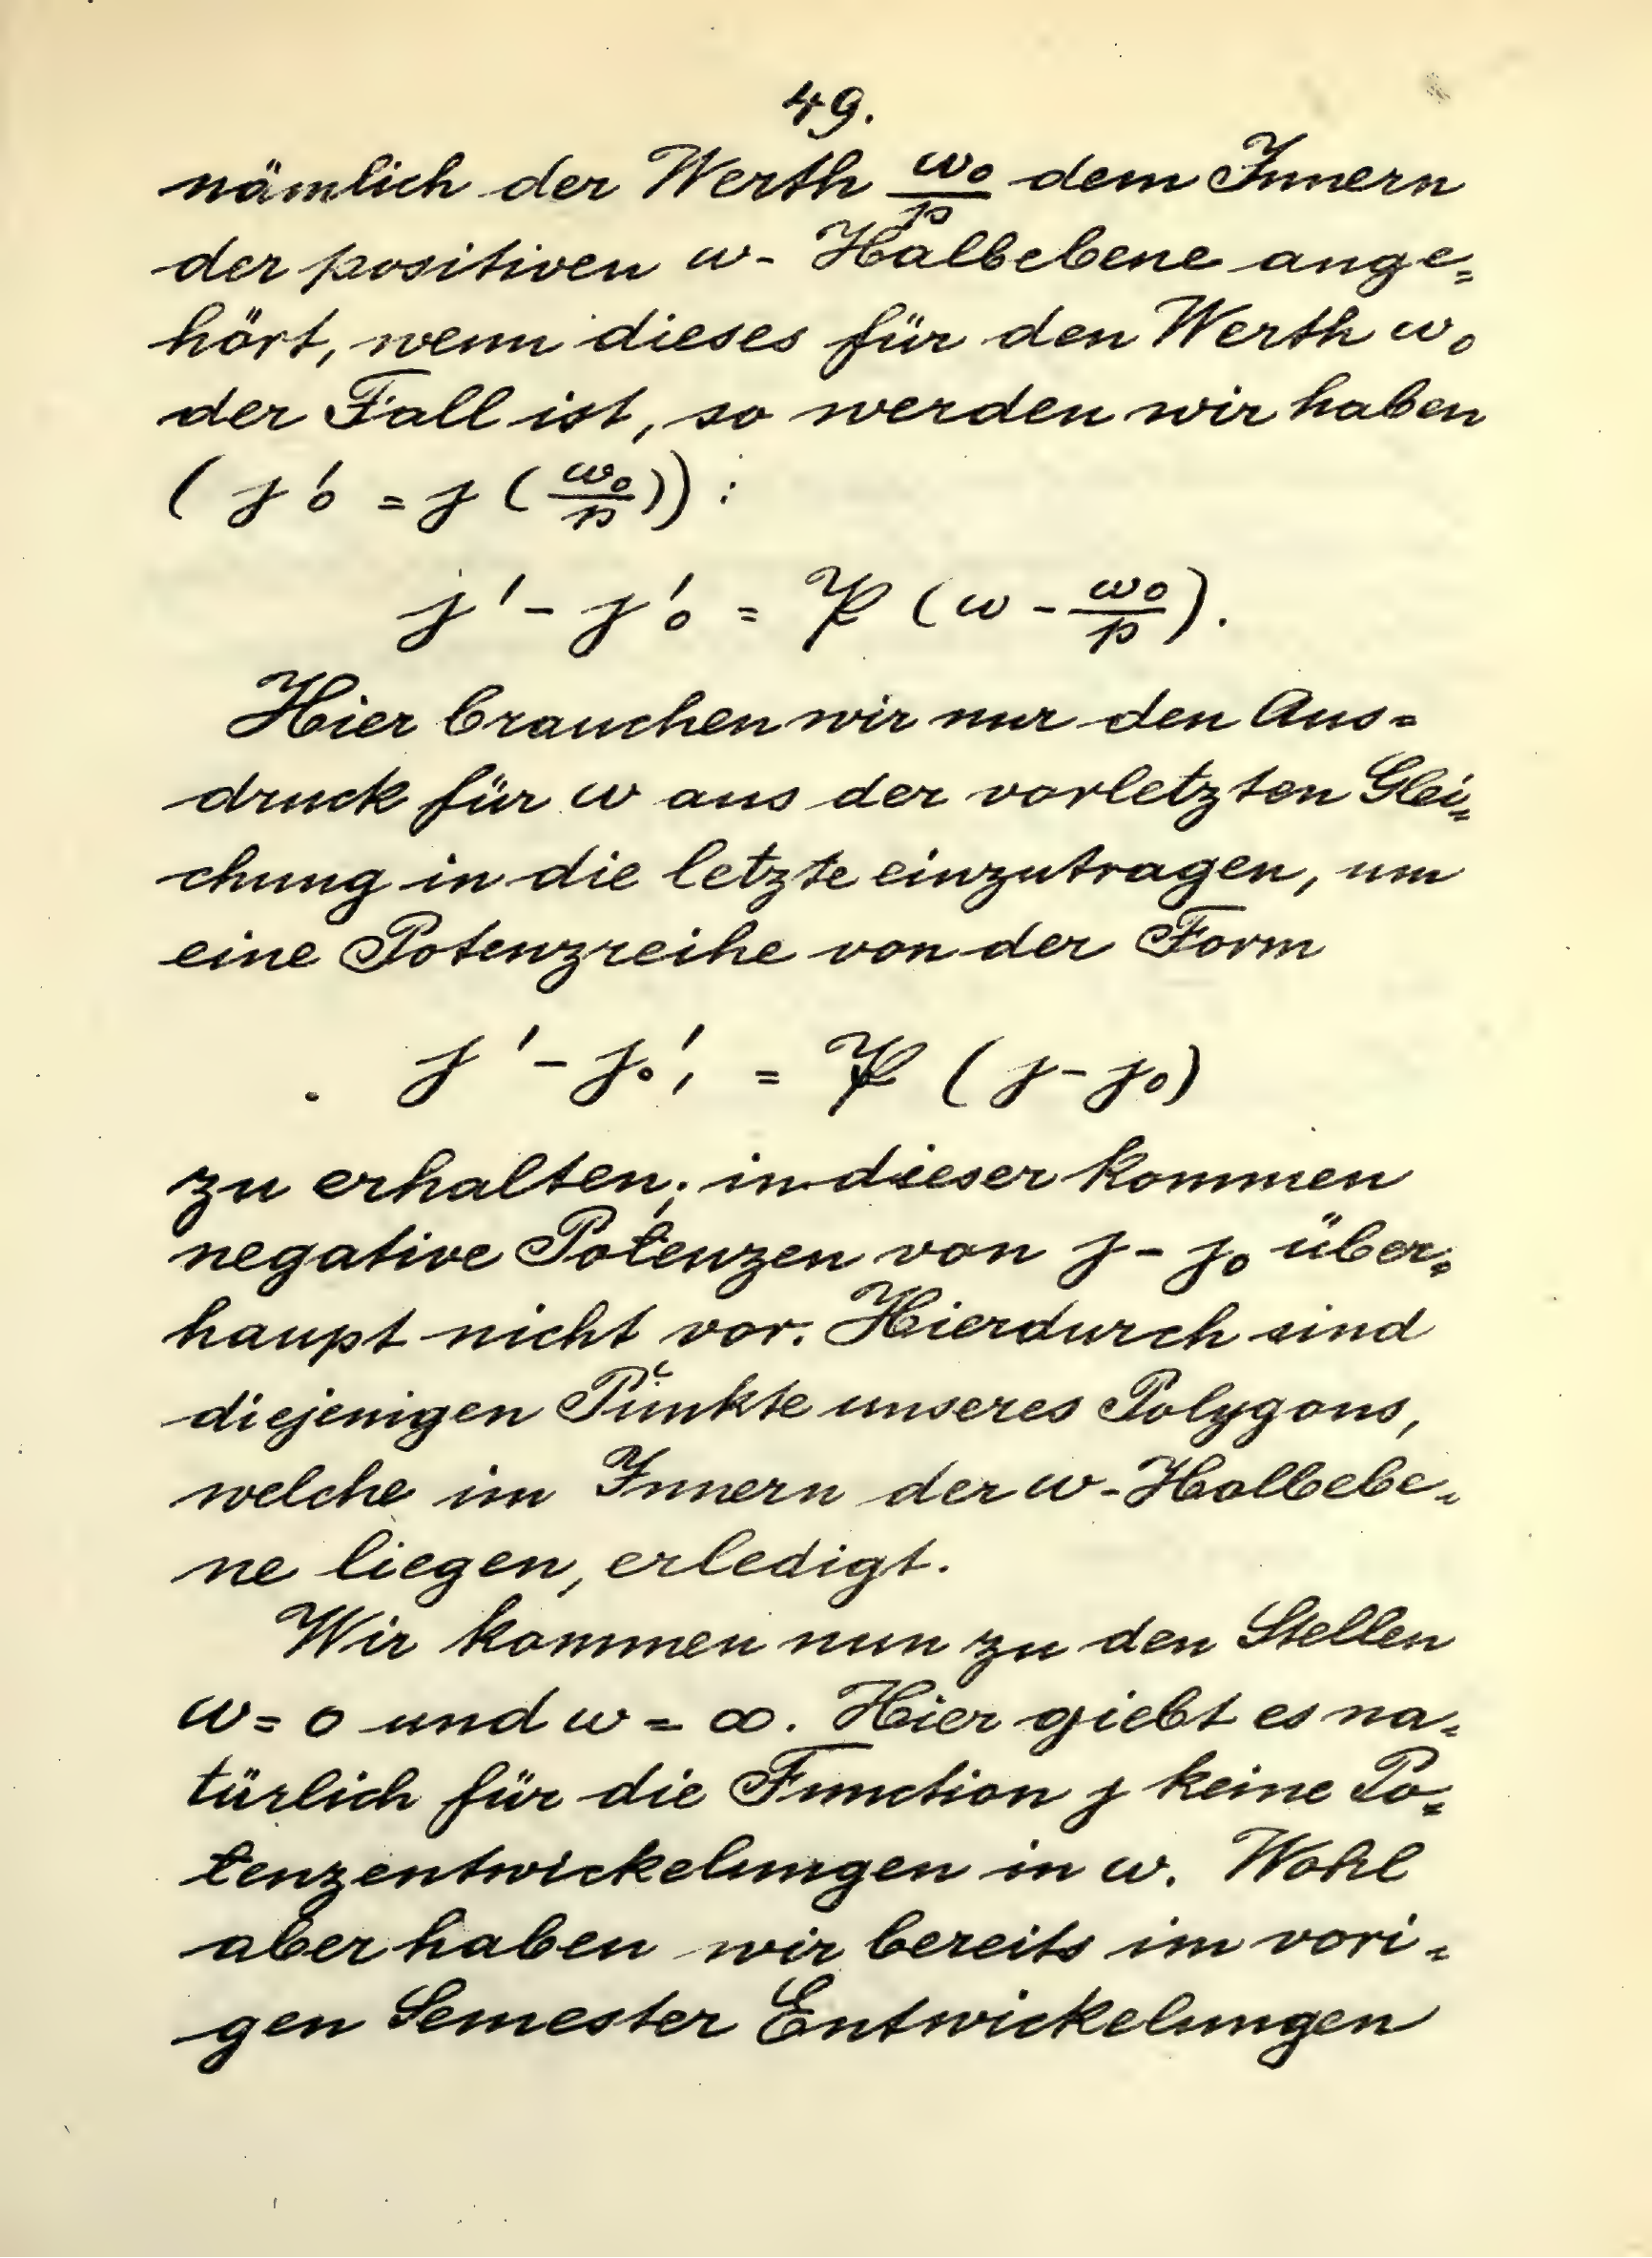 49.
nämlich der Werth ω₀/p dem Innern
der positiven ω- Halbebene ange=
hört, wenn dieses für den Werth ω₀
der Fall ist, so werden wir haben
( j₀' = j ( ω₀/p ) ) :
j' - j₀' = 𝔓 ( ω - ω₀/p ).
Hier brauchen wir nur den Aus=
druck für ω aus der vorletzten Glei=
chung in die letzte einzutragen, um
eine Potenzreihe von der Form
j' - j₀', = 𝔓 ( j - j₀ )
zu erhalten; in dieser kommen
negative Potenzen von j - j₀ über=
haupt nicht vor. Hierdurch sind
diejenigen Punkte unseres Polygons,
welche im Innern der ω-Halbebe=
ne liegen, erledigt.
Wir kommen nun zu den Stellen
ω = 0 und ω = ∞. Hier giebt es na=
türlich für die Function j keine Po=
tenzentwickelungen in ω. Wohl
aber haben wir bereits im vori=
gen Semester Entwickelungen